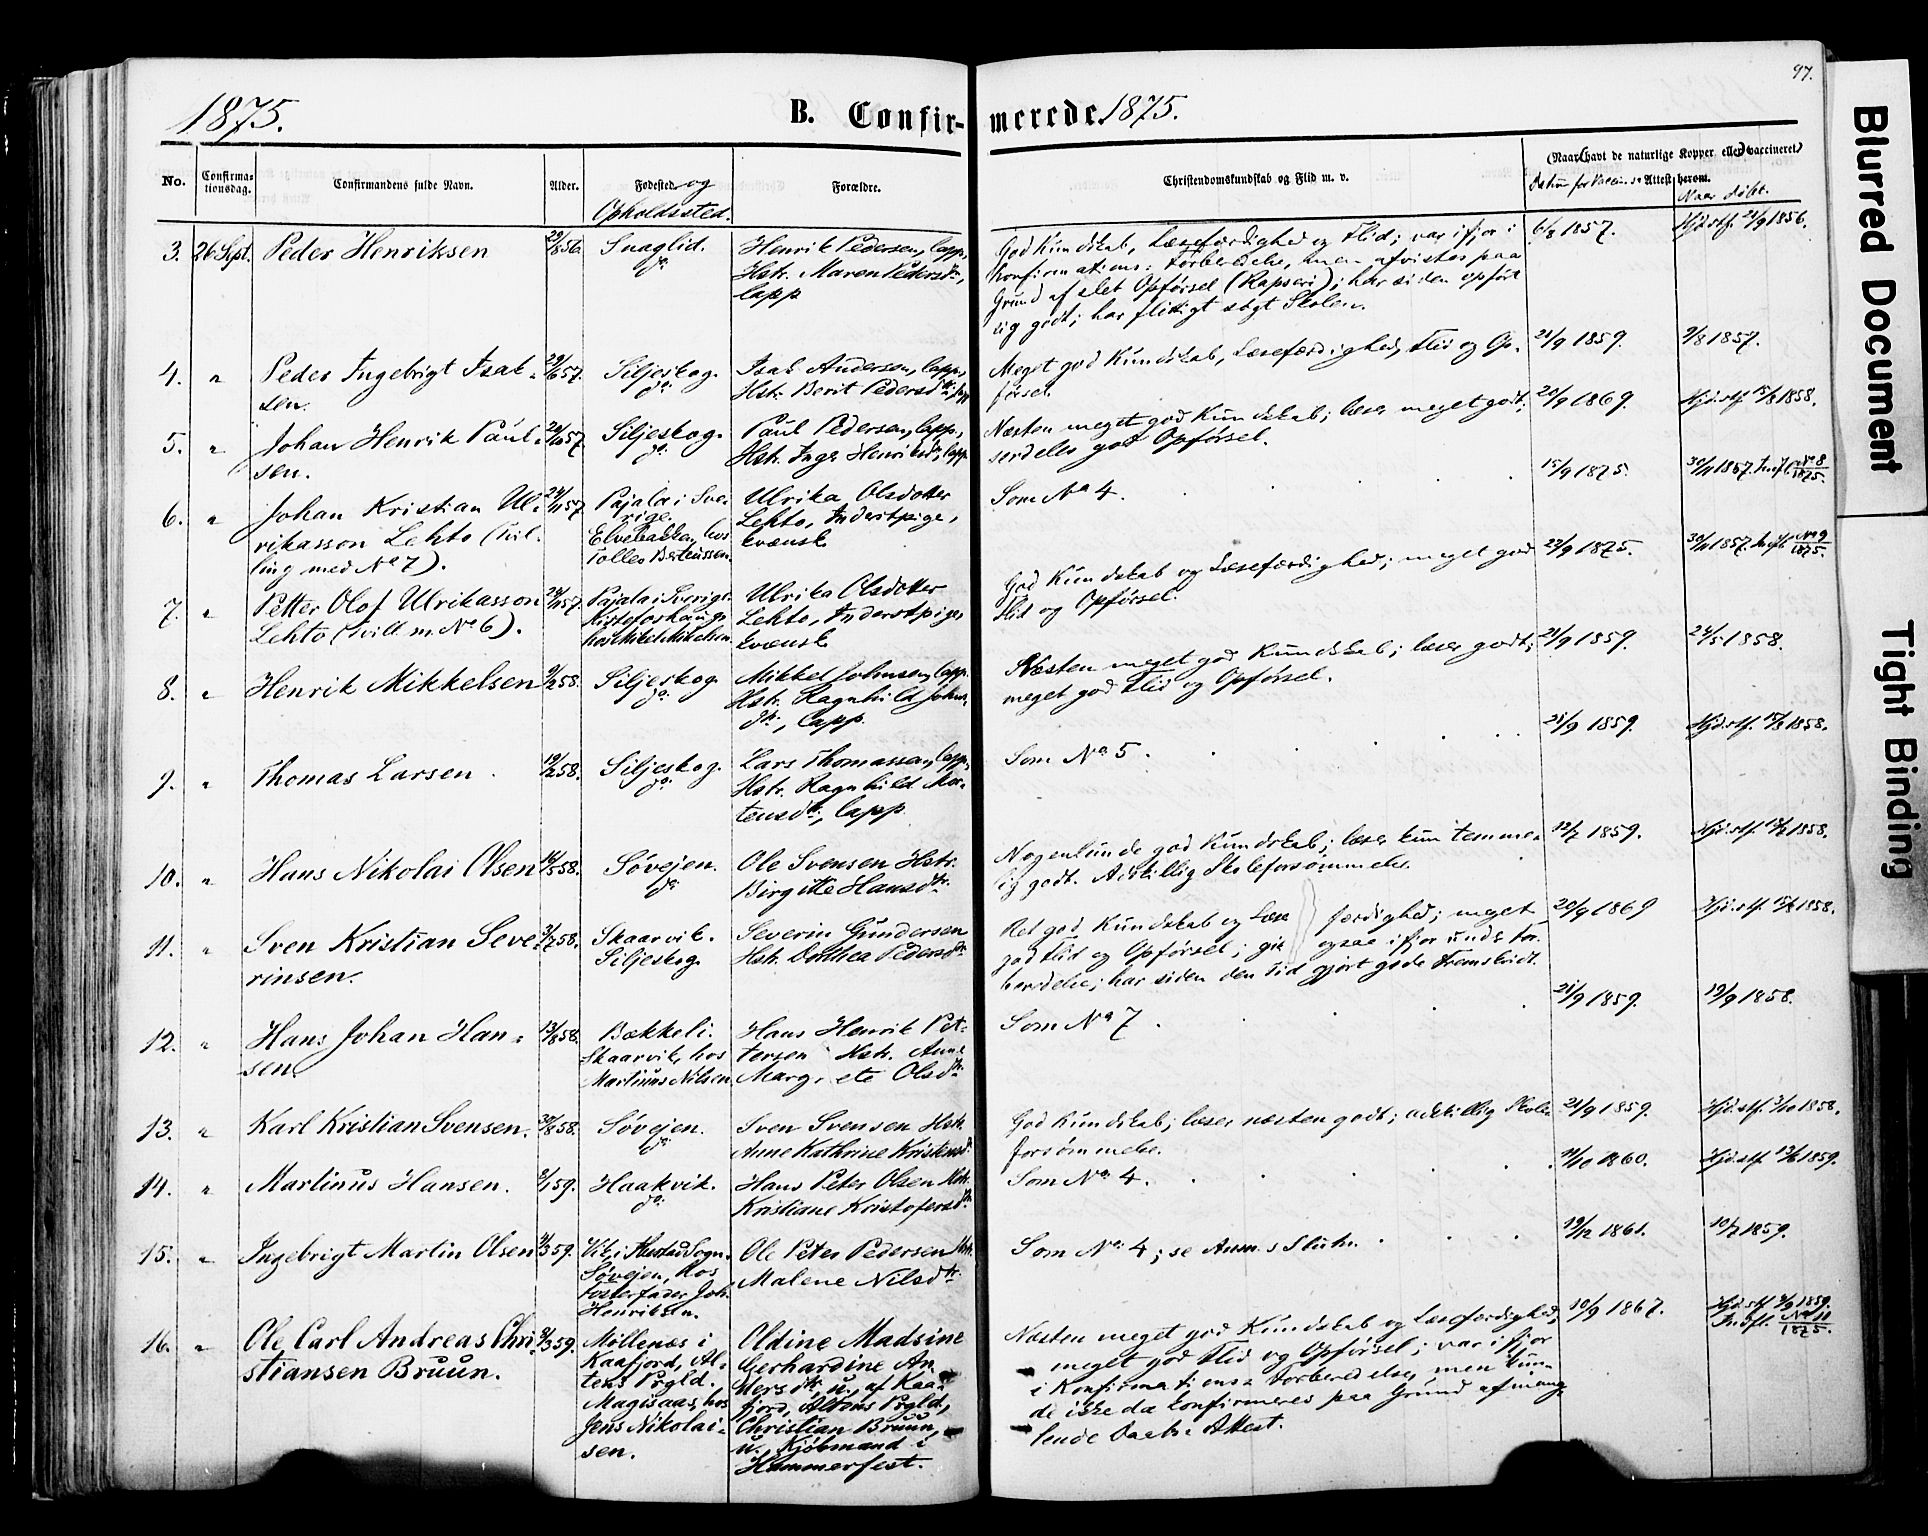 97.
1875.
B. Confir-
merede. 1875.
No.
Confirma-
tionsdag.
Confirmandens fulde Navn.
Alder.
Fødested og
Opholdssted.
Forældre.
Christendomskundskab og Flid m. v.
(Naar) (havt de naturlige Kopper eller) vaccineret)
Datum for Vaccins Attest herom.
Naar døbt.
3. 26 Sept. Peder Henriksen 29/8 56. Snaglid.
do
Henrik Pedersen, lapp,
Hstr. Maren Pedersdtr,
lapp
God Kundskab, Læsefærdighed og Flid; var ifjor i
Konfirmations: Forberedelse, men afvistes paa
Grund af slet Opførsel (Rapseri); har siden opført
sig godt; har flittigt søgt Skolen.
6/8 1857.
Hjd. stf. 21/9 1856.
4. " Peder Ingebrigt Isak-
sen. 29/6 57. Siljeskog.
do
Isak Andersen, lapp,
Hstr. Berit Pedersdtr. lapp
Meget god Kundskab, Læsefærdighed, Flid og Op-
førsel.
21/9 1859.
9/8 1857.
5. " Johan Henrik Paul-
sen. Siljeskog.
do
Paul Pedersen, lapp,
Hstr. Inger Henriksdtr, lapp
Næsten meget god Kundskab; læser meget godt;
serdeles god Opførsel.
20/9 1869.
Hjd. stf. 1858.
6. " Johan Kristian Ul-
rikasson Lehto (Tvil-
ling med No 7).
24/11 57 Pajala i Sve-
rige.
Elvebakken, hos
Tolles Berteussen.
Ulrika Olsdotter
Lehto, Inderstpige,
kvænsk
Som No 4.
15/9 1875.
30/11 1857. Indf. No 8
1875.
7. " Petter Olof Ulrikasson
Lehto (Tvill. m. No 6).
24/11 57. Pajala i Sverige.
Kistofoshaug
hos Mikel Mikelsen.
Ulrika Olsdotter
Lehto, Inderstpige,
kvænsk
God Kundskab og Læsefærdighed; meget god
Flid og Opførsel.
22/9 1875.
30/11 1857. Indf. No 9
1875.
8. " Henrik Mikkelsen 9/2 58. Siljeskog
do
Mikkel Johnsen, lapp.
Hstr. Ragnhild Johns-
dtr, lapp.
Næsten meget god Kundskab; læser godt;
meget god Flid og Opførsel.
21/9 1859.
24/5 1858.
9. " Thomas Larsen. 19/2 58. Siljeskog.
do
Lars Thomassen, lapp,
Hstr. Ragnhild Mor-
tensdtr, lapp
Som No 5.
21/9 1859.
Hjd. stf. 1858.
10. " Hans Nikolai Olsen 16/5 58. Søvejen.
do
Ole Svensen Hstr.
Birgitte Hansdtr.
Nogenlunde god Kundskab; læser kun temme-
lig godt. Adskillig Skoleforsømmelse.
12/7 1859.
Hjd. stf. 1858.
11. " Sven Kristian Seve-
rinsen. 3/7 58. Skaarvik.
Siljeskog
Severin Gundersen
Hstr. Dorthea Pedersdtr
Ret god Kundskab og Læse færdighed; meget
god Flid og Opførsel; gik ogsaa ifjor under For-
beredelse; har siden den Tid gjort gode Fremskridt.
20/9 1869
Hjd. stf. 1858.
12. " Hans Johan Han-
sen. 13/8 58. Bækkeli.
Skaarvik, hos
Martinus Nilsen
Hans Henrik Pet-
tersen Hstr. Anne
Margrete Olsdtr.
Som No 7.
21/9 1859.
19/9 1858.
13. " Karl Kristian Svensen. 30/8 58. Søvejen.
do
Sven Svensen Hstr.
Anne Kathrine Kristensdtr
God Kundskab; læser næsten godt; adskillig Skole-
forsømmelse.
21/9 1859.
Hjd. stf. 3/10 1858.
14. " Martinus Hansen. 9/1 59. Haakvik.
do
Hans Peter Olsen Hstr.
Kristiane Kristofersdtr
Som No 4.
11/10 1860.
Hjd. stf. 1859.
15. " Ingebrigt Martin Olsen 3/3 59. Vik i Sogn.
Søvejen, hos
Fosterfader Joh.
Henriksen.
Ole Peter Pedersen Hstr.
Malene Nilsdtr.
Som No 4; se Anm. s Slutn.
19/12 1861.
10/7 1859.
16. " Ole Carl Andreas Chri-
stiansen Bruun.
9/3 59. Møllenæs i
Kaafjord, Al-
tens Prgld.
Magisaas, hos
Jens Nikolai-
sen.
Oldine Madsine
Gerhardine An-
dersdtr, u., af Kaa-
fjord, Altens Prgld,
Christian Bruun,
u. Kjøbmand i
Hammerfest.
Næsten meget god Kundskab og Læsefærdighed,
meget god Flid og Opførsel; var ifjor
i Konfirmations Forberedelse, men kun-
de ikke da konfirmeres paa Grund af mang-
lende Daabs Attest.
10/9 1867.
Hjd. stf. 9/9 1859.
Indf. No 11
1875.
Blurred Document
Tight Binding